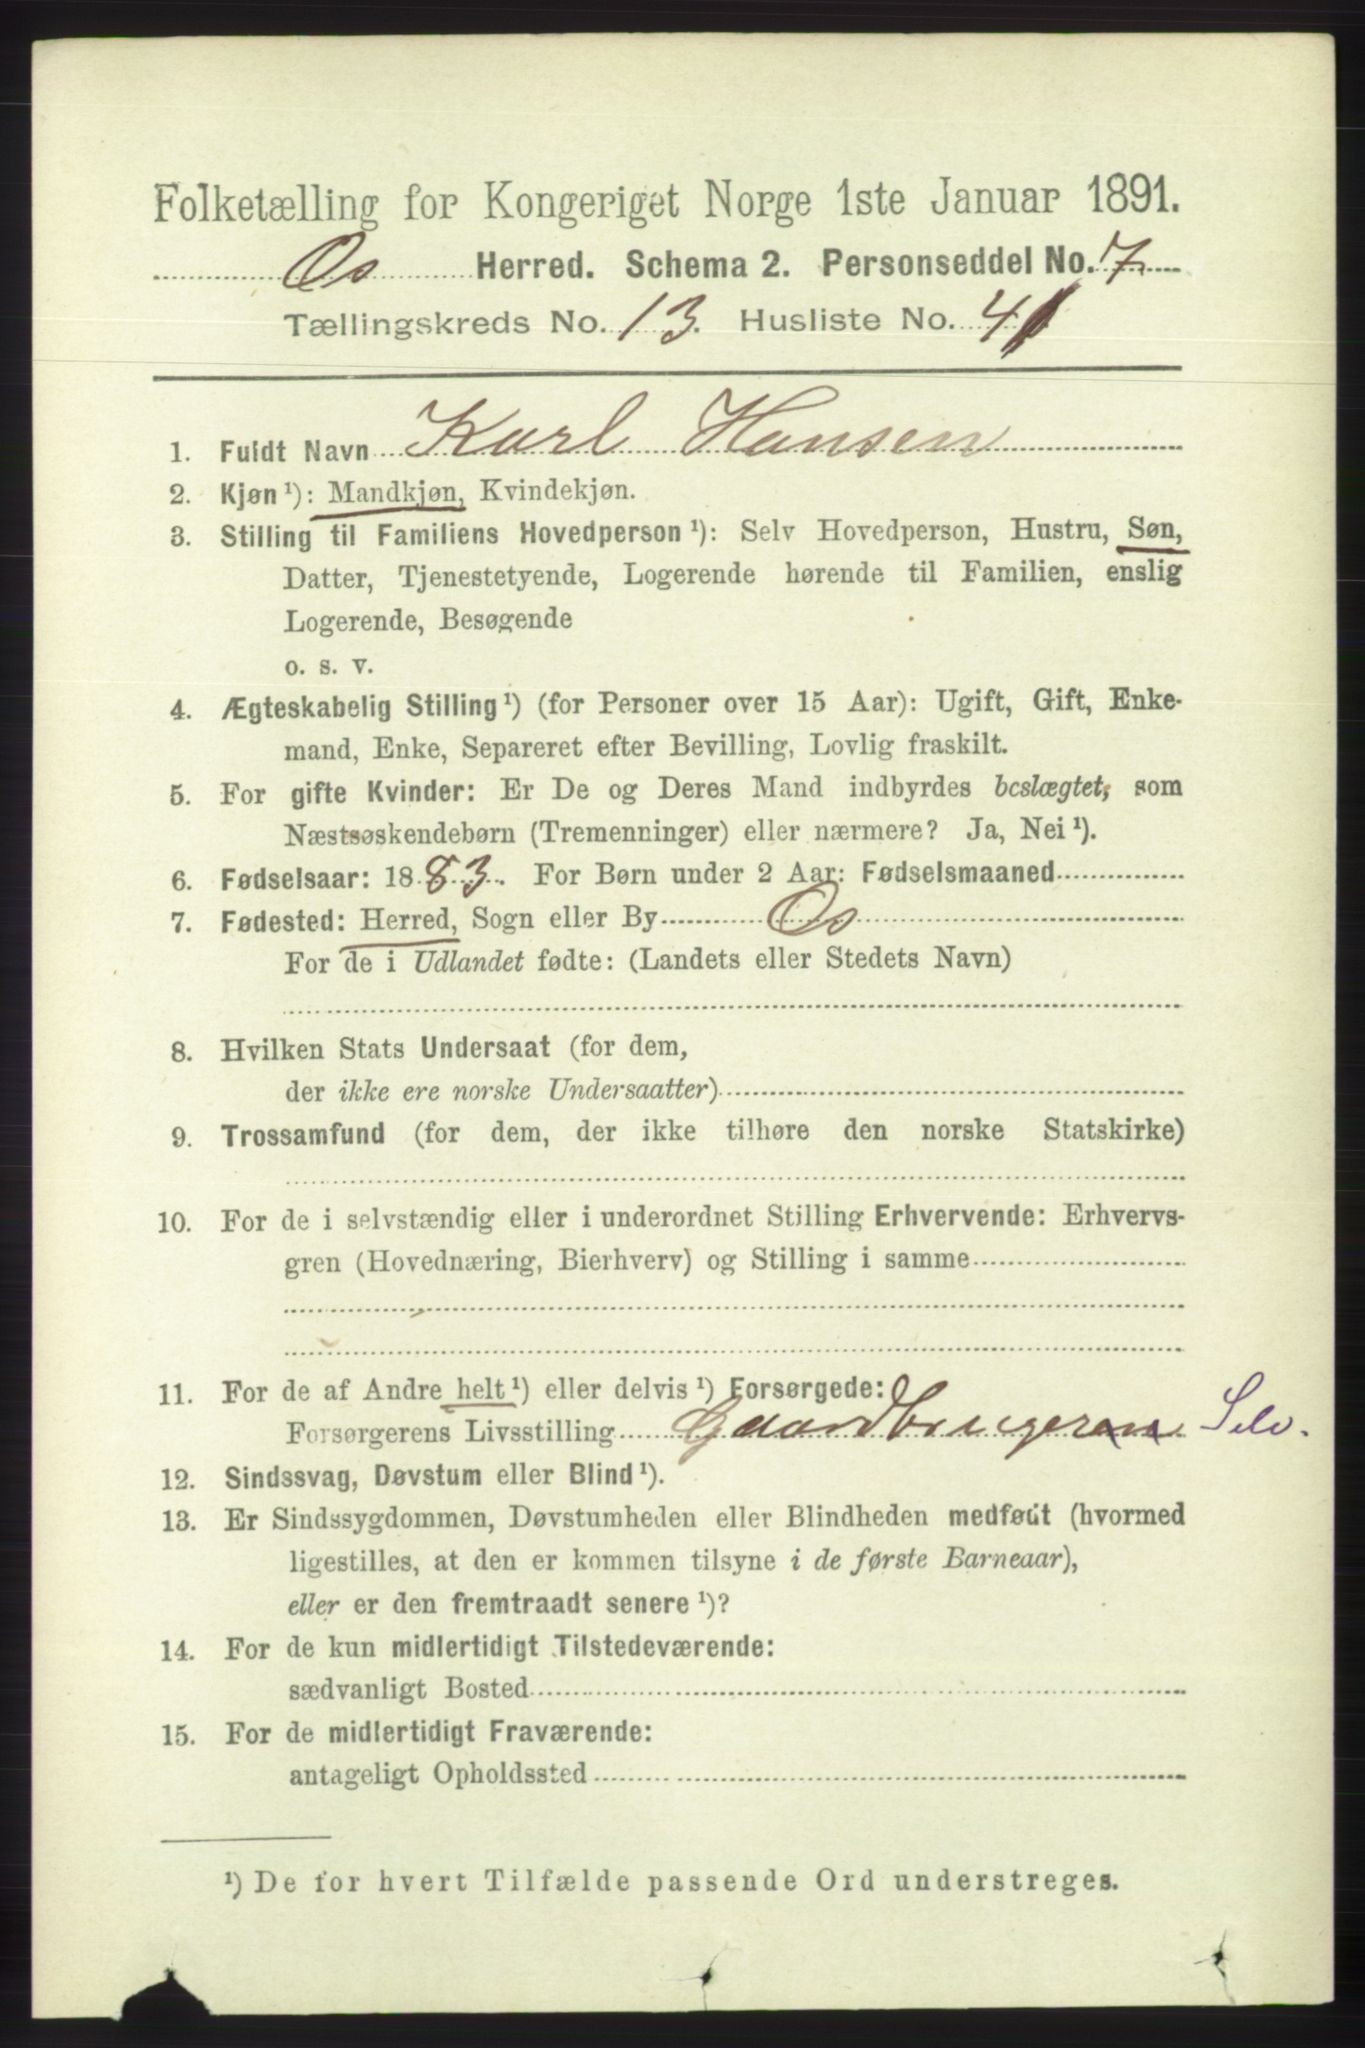 Folketælling for Kongeriget Norge 1ste Januar 1891.
Os Herred. Schema 2. Personseddel No. 7
Tællingskreds No. 13. Husliste No. 4
1. Fuldt Navn Karl Hansen
2. Kjøn ¹): Mandkjøn, Kvindekjøn.
3. Stilling til Familiens Hovedperson ¹): Selv Hovedperson, Hustru, Søn,
Datter, Tjenestetyende, Logerende hørende til Familien, enslig
Logerende, Besøgende
o. s. v.
4. Ægteskabelig Stilling ¹) (for Personer over 15 Aar): Ugift, Gift, Enke-
mand, Enke, Separeret efter Bevilling, Lovlig fraskilt.
5. For gifte Kvinder: Er De og Deres Mand indbyrdes beslægtet, som
Næstsøskendebørn (Tremenninger) eller nærmere? Ja, Nei ¹).
6. Fødselsaar: 1883. For Børn under 2 Aar: Fødselsmaaned
7. Fødested: Herred, Sogn eller By Os
For de i Udlandet fødte: (Landets eller Stedets Navn)
8. Hvilken Stats Undersaat (for dem,
der ikke ere norske Undersaatter)
9. Trossamfund (for dem, der ikke tilhøre den norske Statskirke)
10. For de i selvstændig eller i underordnet Stilling Erhvervende: Erhvervs-
gren (Hovednæring, Bierhverv) og Stilling i samme
11. For de af Andre helt ¹) eller delvis ¹) Forsørgede:
Forsørgerens Livsstilling Gaardbrugeren Selv.
12. Sindssvag, Døvstum eller Blind ¹).
13. Er Sindssygdommen, Døvstumheden eller Blindheden medfødt (hvormed
ligestilles, at den er kommen tilsyne i de første Barneaar),
eller er den fremtraadt senere ¹)?
14. For de kun midlertidigt Tilstedeværende:
sædvanligt Bosted
15. For de midlertidigt Fraværende:
antageligt Opholdssted
¹) De for hvert Tilfælde passende Ord understreges.